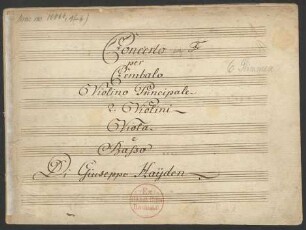 Concerto in F
per
Cimbalo
Violino Principale
2 Violini
Viola
e
Basso
Di Giuseppe Haÿden